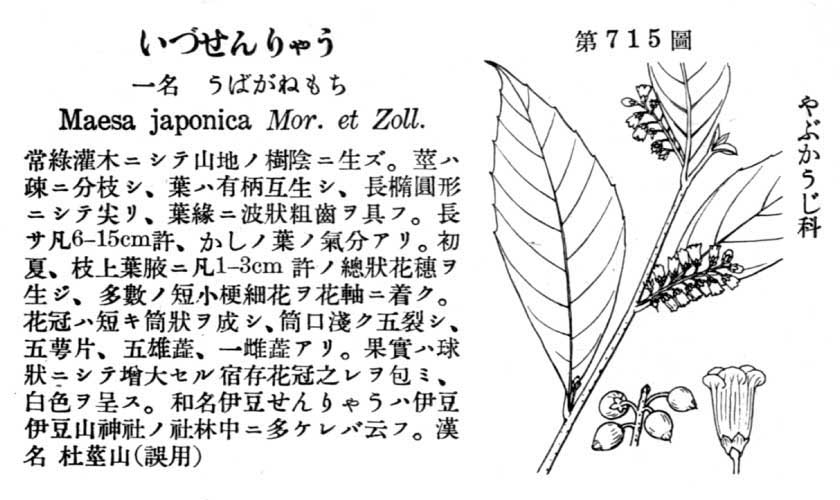 いづせんりゃう
一名 うばがねもち
Maesa japonica Mor. et Zoll.
常綠灌木ニシテ山地ノ樹陰ニ生ズ。莖ハ
疎ニ分枝シ、葉ハ有柄互生シ、長橢圓形
ニシテ尖リ、葉緣ニ波狀粗齒ヲ具フ。長
サ凡6-15cm許、かしノ葉ノ氣分アリ。初
夏、枝上葉腋ニ凡1-3cm 許ノ總狀花穗ヲ
生ジ、多數ノ短小梗細花ヲ花軸ニ着ク。
花冠ハ短キ筒狀ヲ成シ、筒口淺ク五裂シ、
五萼片、五雄蕋、一雌蕋アリ。果實ハ球
狀ニシテ增大セル宿存花冠之レヲ包ミ、
白色ヲ呈ス。和名伊豆せんりゃうハ伊豆
伊豆山神社ノ社林中ニ多ケレバ云フ。漢
名 杜莖山(誤用)
第715圖
やぶかうじ科